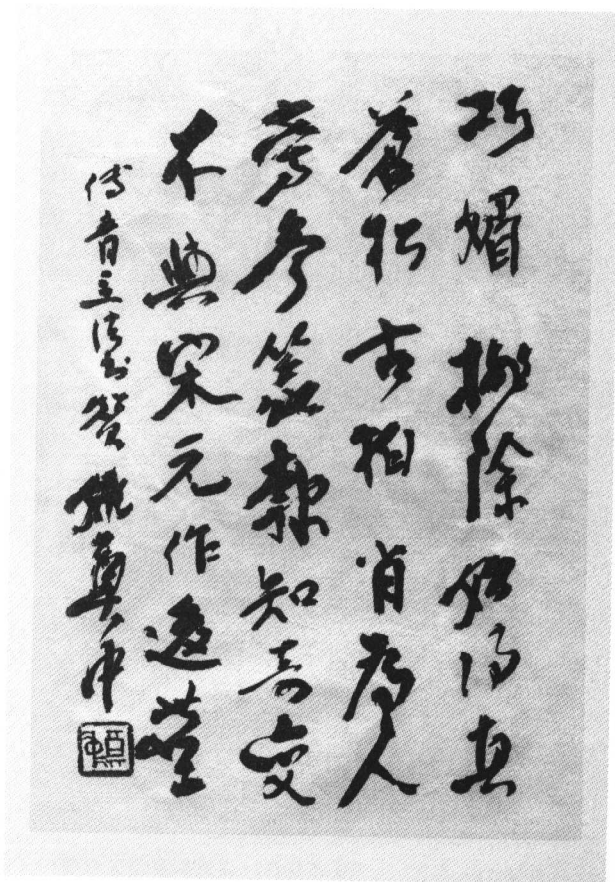 巧媚摒除始得真
蒼松古柏肖為人
旁參篆隸知奇變
不與宋元作後塵
傅青主法書贊 姚奠中